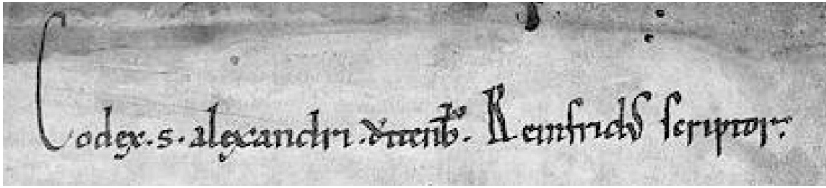 Codex. s. alexandri. Reinfridꝰ scriptor.